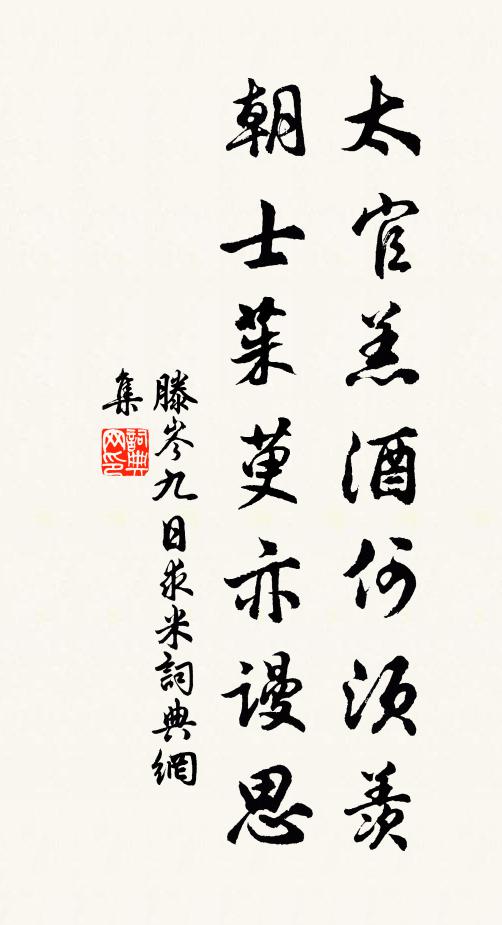 太官羔酒何須羨
朝士茱萸亦謾思
滕岑九日求米詞典網
集
詞典网印